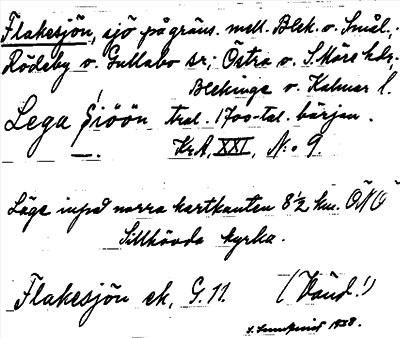 Flakesjön, sjö på gräns. mell. Blek. o. Smål.,
Rödeby o. Gullabo sr; Östra o. S. Möre hdr,
Blekinge o. Kalmar l.
Lega Siöön trol. 1700-tal. början.
Kr.A, XXI, N:o 9
Läge inpå norra kartkanten 8 1/2 km. ÖNÖ
Sillhövda kyrka.
Flakesjön ek, G. 11. (Vänd!)
1938.